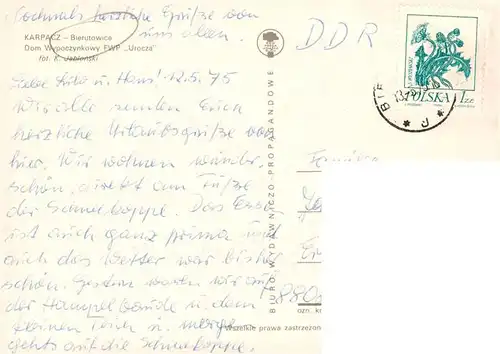 Nochmals herzliche Grüße von
uns allen.
KARPACZ — Bierutowice
Dom Wypoczynkowy FWP „Urocza"
fot. K. Jabłoński
Liebe Lilo u. Hans! 12.5.75
Wir alle senden Euch
herzliche Urlaubsgrüße von
hier. Wir wohnen wunder-
schön, direkt am Fuße
der Schneekoppe. Das Essen
ist auch ganz prima und
auch das Wetter war bisher
schön. Gestern waren wir auf
der Hampelbaude u. dem
kleinen Teich u. morgen
gehts auf die Schneekoppe.
BIURO WYDAWNICZO-PROPAGANDOWE
DDR
POLSKA 1 ZŁ
Familie
880
Wszelkie prawa zastrzeżon